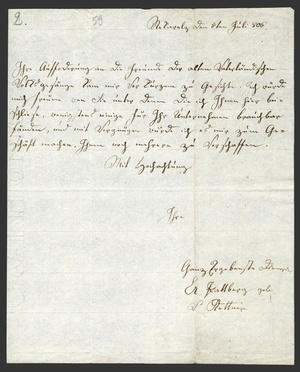 2.
59
den 8ten Juli 806
Ihre Aufforderung an die Freunde der alten Vaterländschen
Volksgesänge kam mir vor Kurzem zu Gesichte. Ich würde
mich freuen wenn Sie unter denen die ich Ihnen hier bei
schliese, wenigstens einige für Ihr Unternehmen brauchbar
fänden, und mit Vergnügen würde ich es mir zum Ge
schäft machen Ihnen noch mehrere zu verschaffen.
Mit Hochachtung
Ihre
Ganz Ergebenste
geb.